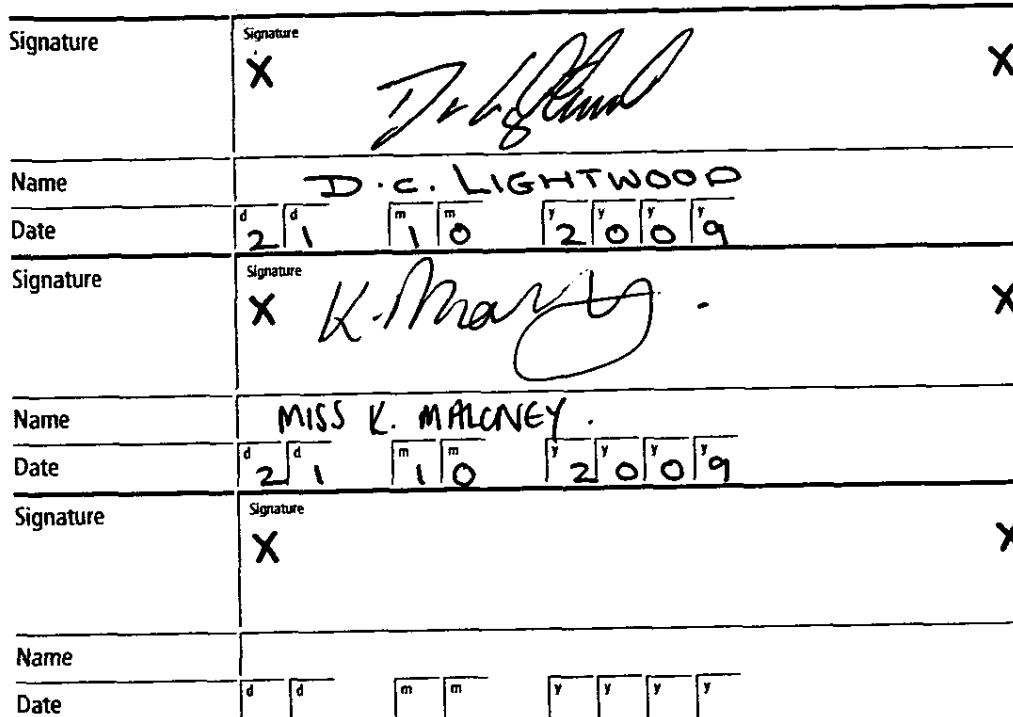 Signature
Signature
X X
Name D.C. LIGHTWOOD
Date d d m m y y y y
21 10 2009
Signature
Signature
X K. X
Name MISS K. MALONEY.
Date d d m m y y y y
21 10 2009
Signature
Signature
X X
Name
Date d d m m y y y y